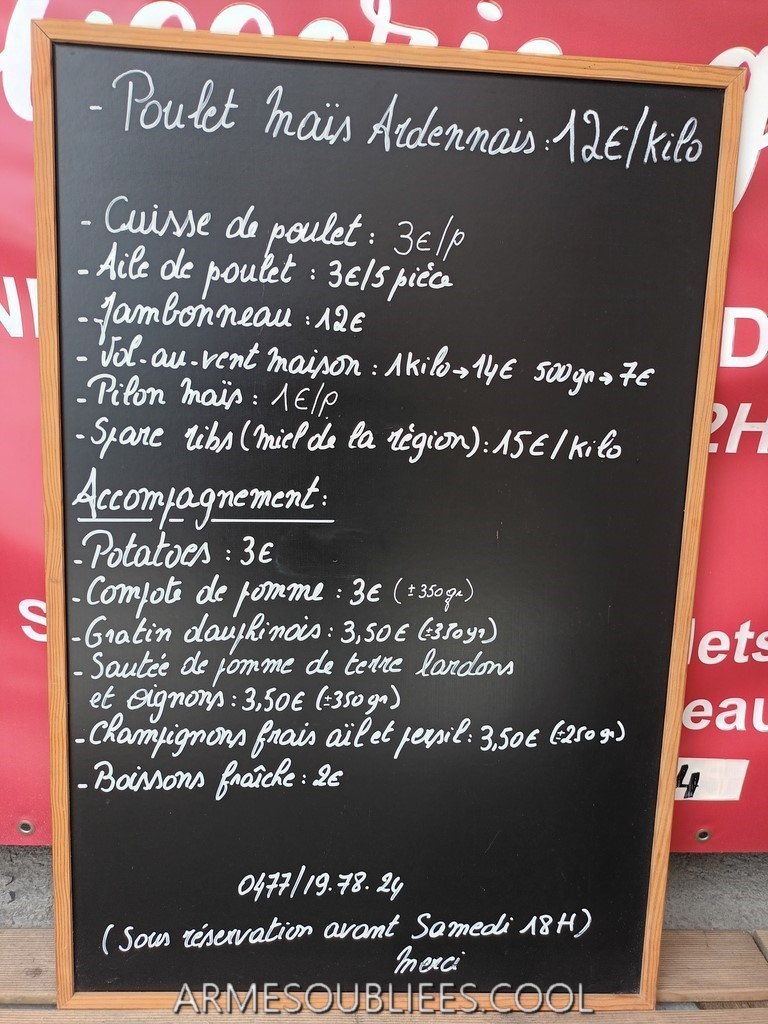 - Poulet Maïs Ardennais: 12€/kilo
- Cuisse de poulet : 3€/p
- Aile de poulet : 3€/5 pièce
- Jambonneau : 12€
- Vol-au-vent maison : 1kilo→14€ 500gr→7€
- Pilon Maïs : 1€/p
- Spare ribs (miel de la région) : 15€/kilo
Accompagnement :
- Potatoes : 3€
- Compote de pomme : 3€ (±350gr)
- Gratin dauphinois : 3,50€ (±350gr)
- Sautée de pomme de terre lardons
et oignons : 3,50€ (±350gr)
- Champignons frais aïl et persil : 3,50€ (±250gr)
- Boissons fraîche : 2€
0477/19.78.24
(Sous réservation avant Samedi 18H)
Merci
D
2H
S
lets
eau
4
ARMESOUBLIEES.COOL